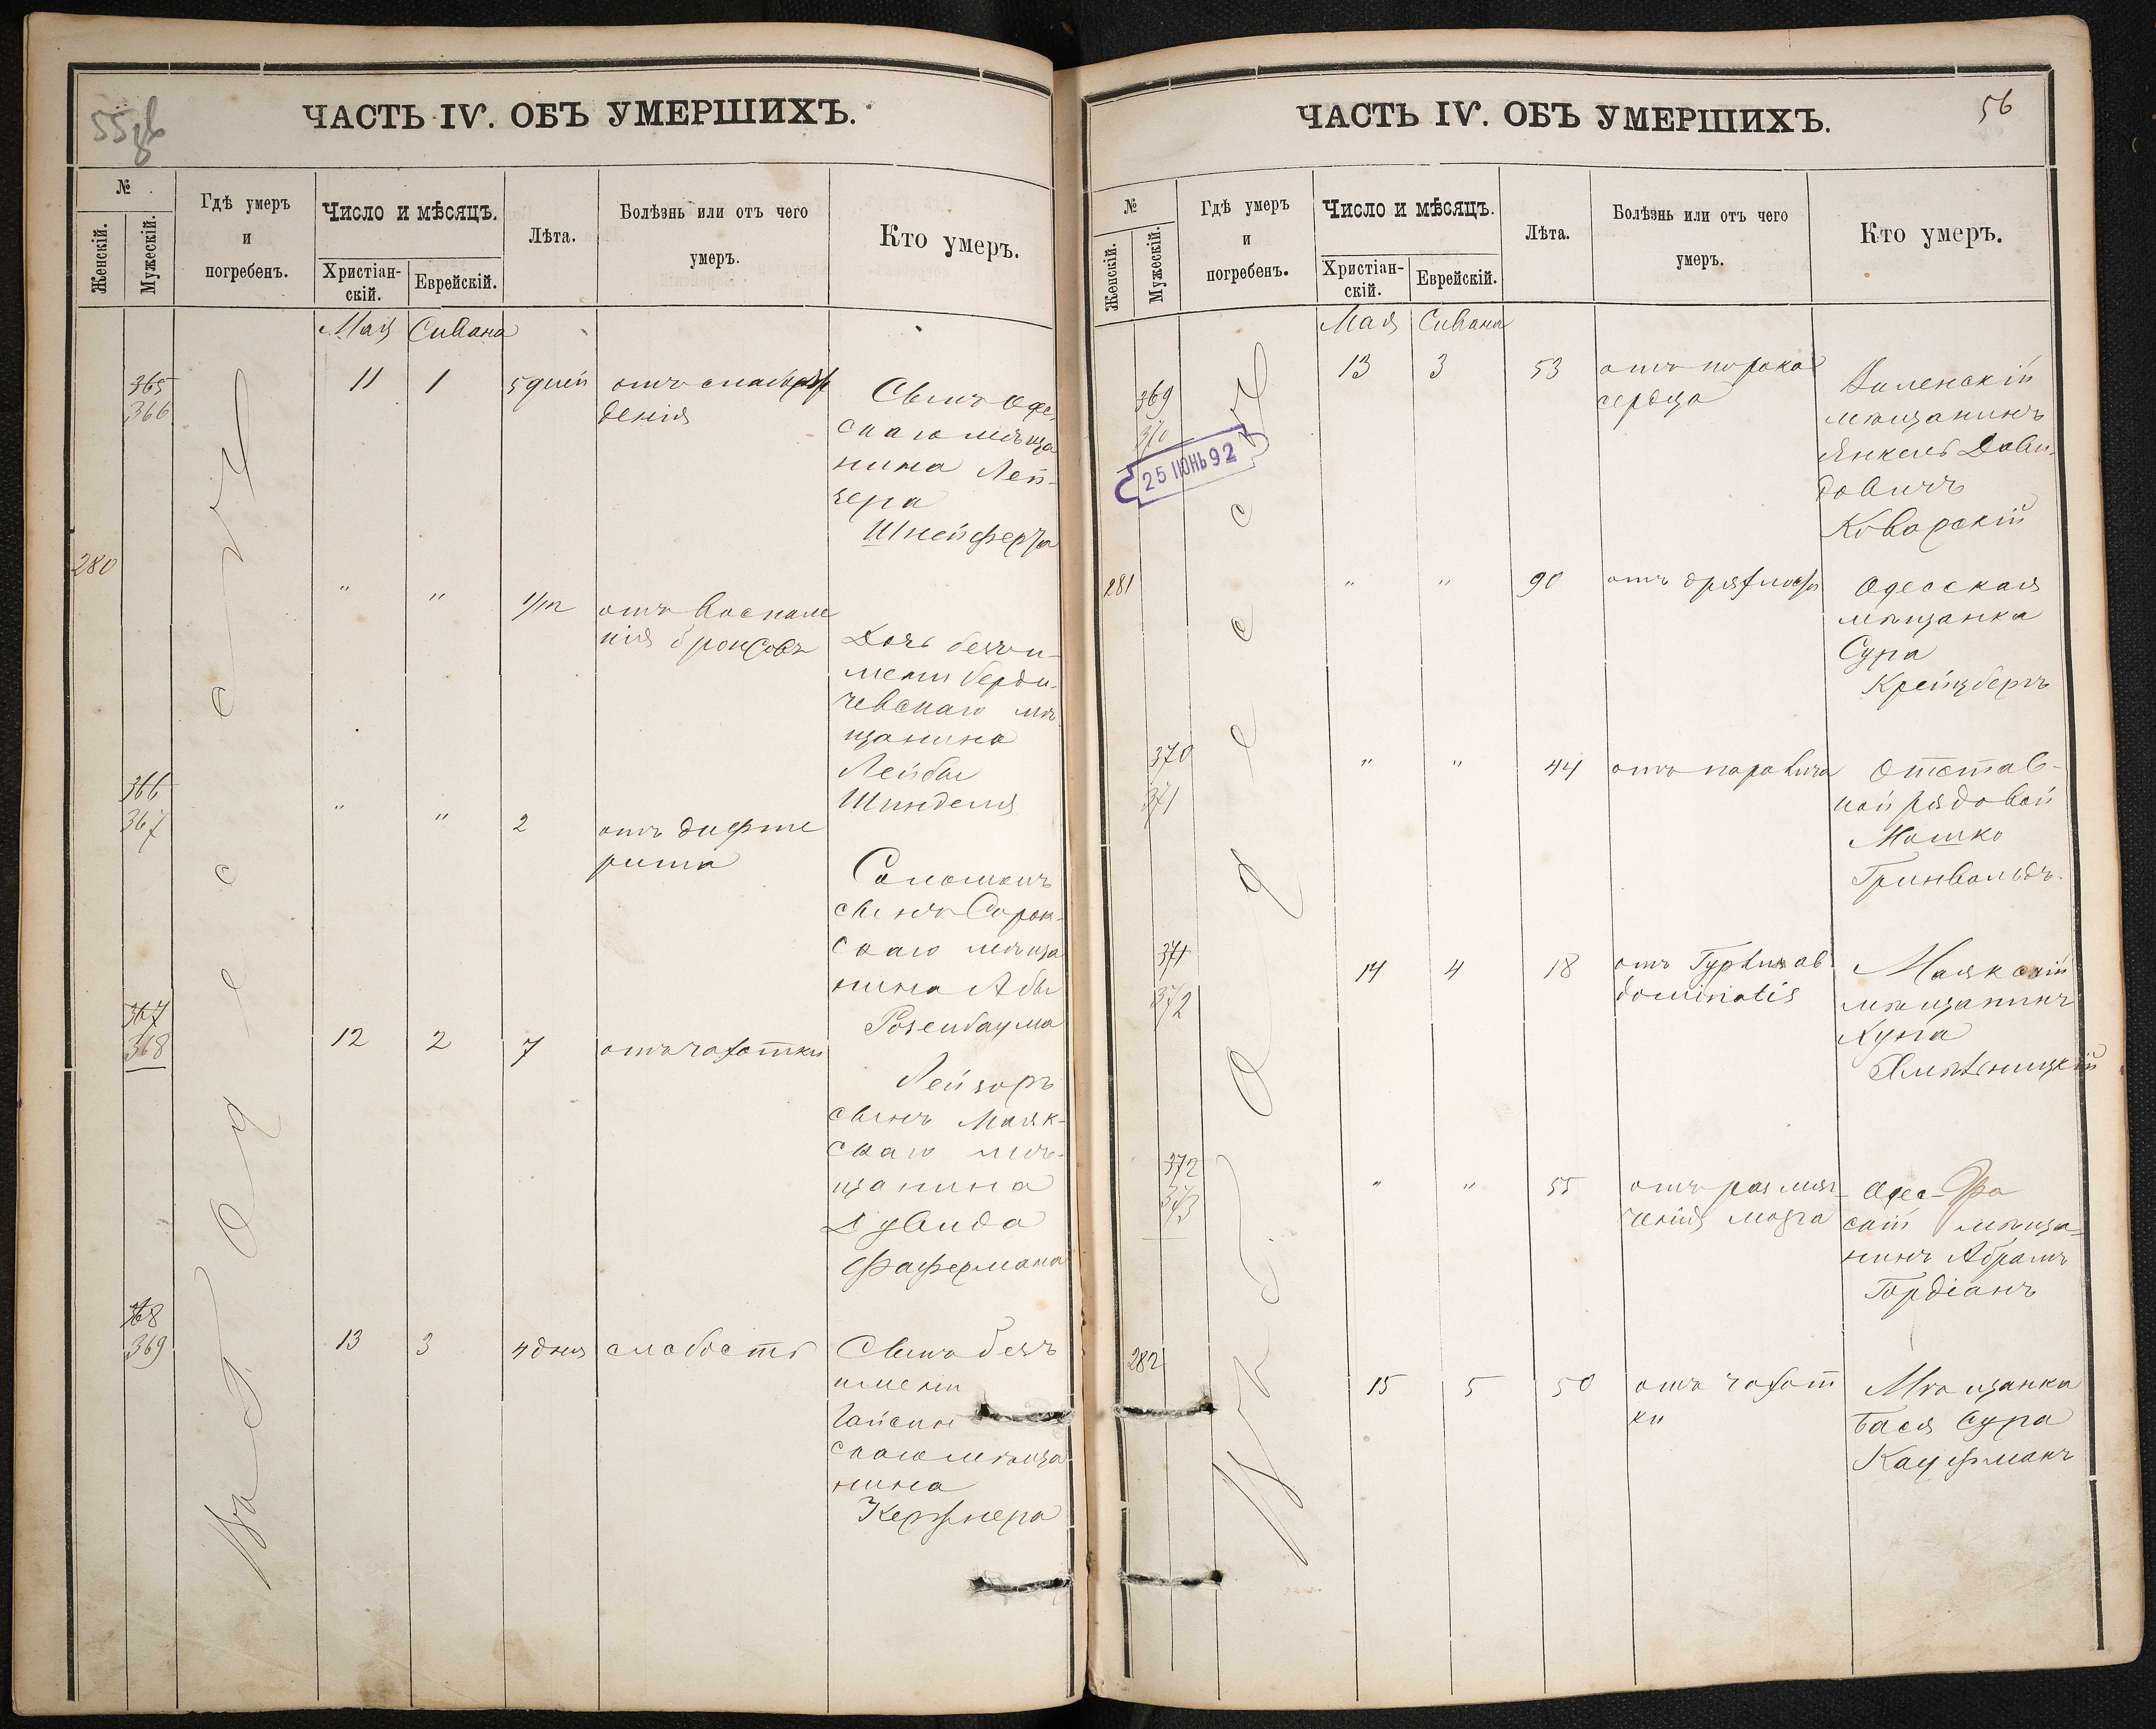 55 об
ЧАСТЬ IV. ОБЪ УМЕРШИХЪ.
№
Женскій.
Мужескій.
Гдѣ умеръ
и
погребенъ.
Число и мѣсяцъ.
Христіан-
скій.
Еврейскій.
Лѣта.
Болѣзнь или отъ чего
умеръ.
Кто умеръ.
Мая Сивана
въ г. Одессѣ
365
366
11 1 5 дней
отъ
денія
Сынъ Одес
скаго мѣща
нина Лей-
зера
280
" " 1/м
отъ воспале
нія бронховъ
Дочь безъ и-
мени Берди-
чевскаго мѣ
щанина
Лейбы
Шинделя
366
367
" " 2
отъ дифте
рита
Соломонъ
сынъ Сорок-
скаго мѣща
нина Абы
Розенбаума
367
368
12 2 7
отъ чахотки
Лейзоръ
сынъ Маяк-
скаго мѣ-
щанина
Дувида
Фафермана
368
369
13 3 4 дня
слабость
Сынъ безъ
имени
Гайсин
скаго мѣща
нина
56
ЧАСТЬ IV. ОБЪ УМЕРШИХЪ.
№
Женскій.
Мужескій.
Гдѣ умеръ
и
погребенъ.
Число и мѣсяцъ.
Христіан-
скій.
Еврейскій.
Лѣта.
Болѣзнь или отъ чего
умеръ.
Кто умеръ.
Мая Сивана
въ г. Одессѣ
369
370
25 ІЮНЬ 92
13 3 53
отъ порока
сердца
Виленскій
мѣщанинъ
Янкель Дави-
довичъ
Коварскій
281
" " 90
отъ дряхлости
Одесская
мѣщанка
Сура
Крейцбергъ
370
371
" " 44
отъ паралича
Отстав-
ной рядовой
Мошко
Гринвальдъ.
371
372
14 4 18
отъ ab
dominalis
Маякскій
мѣщанинъ
Хуна
Хмѣльницкій
372
373
" " 55
отъ размяг-
ченія мозга
Одес-
скій мѣща-
нинъ Абрамъ
Гордіанъ
282
15 5 50
отъ чахот
ки
Мѣщанка
Бася Сура
Кауфманъ